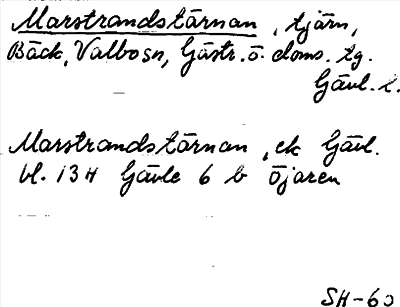 Marstrandstärnan, tjärn,
Bäck, Valbo sn, Gästr. ö. doms. tg.
Gävl. l.
Marstrandstärnan, ek Gävl.
bl. 13H Gävle 6 b Öjaren
SH-60